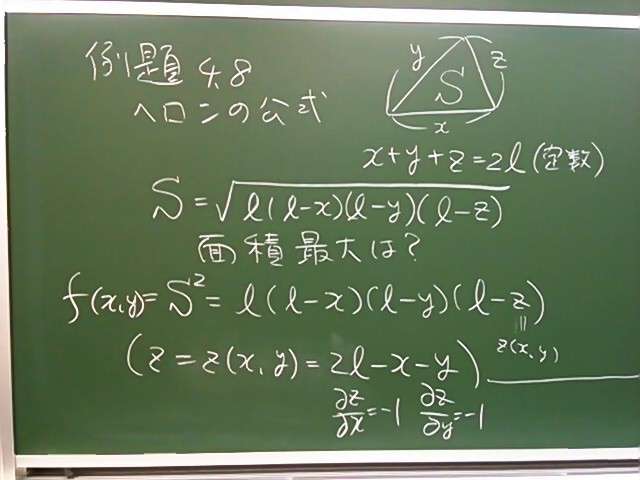 例題 4.8
ヘロンの公式
y
z
S
x
x+y+z=2l(定数)
S=√l(l-x)(l-y)(l-z)
面積最大は?
f(x,y)=S²=l(l-x)(l-y)(l-z)
||
z(x,y)
(z=z(x,y)=2l-x-y)
∂z/∂x=-1 ∂z/∂y=-1